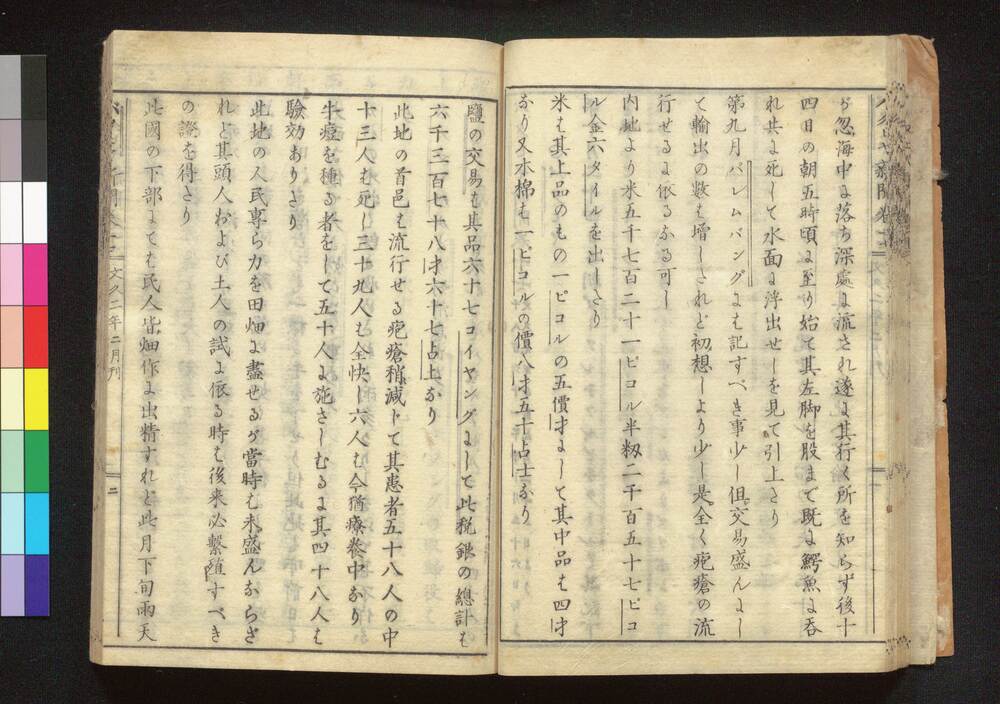 ゟ忽海中に落ち深處に流され遂に其行く所を知らず後十
四日の朝五時頃に至り始て其左脚を股まで既に鰐魚に呑
れ共に死して水面に浮出せしを見て引上たり
第九月パレムバングには記すべき事少し但交易盛んにし
て輸出の數も増したれど初想しより少し是全く疱瘡の流
行せるに依るなる可し
内地より米五千七百二十一ピコル半籾二千百五十七ピコ
ル金六タイルを出したり
米は其上品のもの一ピコルの五價才にして其中品は四才
なり又木棉は一ピコルの價八才五十占士なり
鹽の交易は其品六十七コイヤングにして此税銀の總計は
六千三百七十八才六十七占上なり
此地の首邑に流行せる疱瘡稍減じて其患者五十八人の中
十三人は死し三十九人は全快し六人は今猶療養中なり
牛痘を種る者をして五十人に施さしむるに其四十八人は
驗効ありたり
此地の人民專ら力を田畑に盡せるが當時は未盛んならざ
れど其頭人および土人の試に依る時は後来必繋殖すべき
の證を得たり
此國の下部にては民人皆畑作に出精すれど此月下旬雨天
文久二年二月刊
二